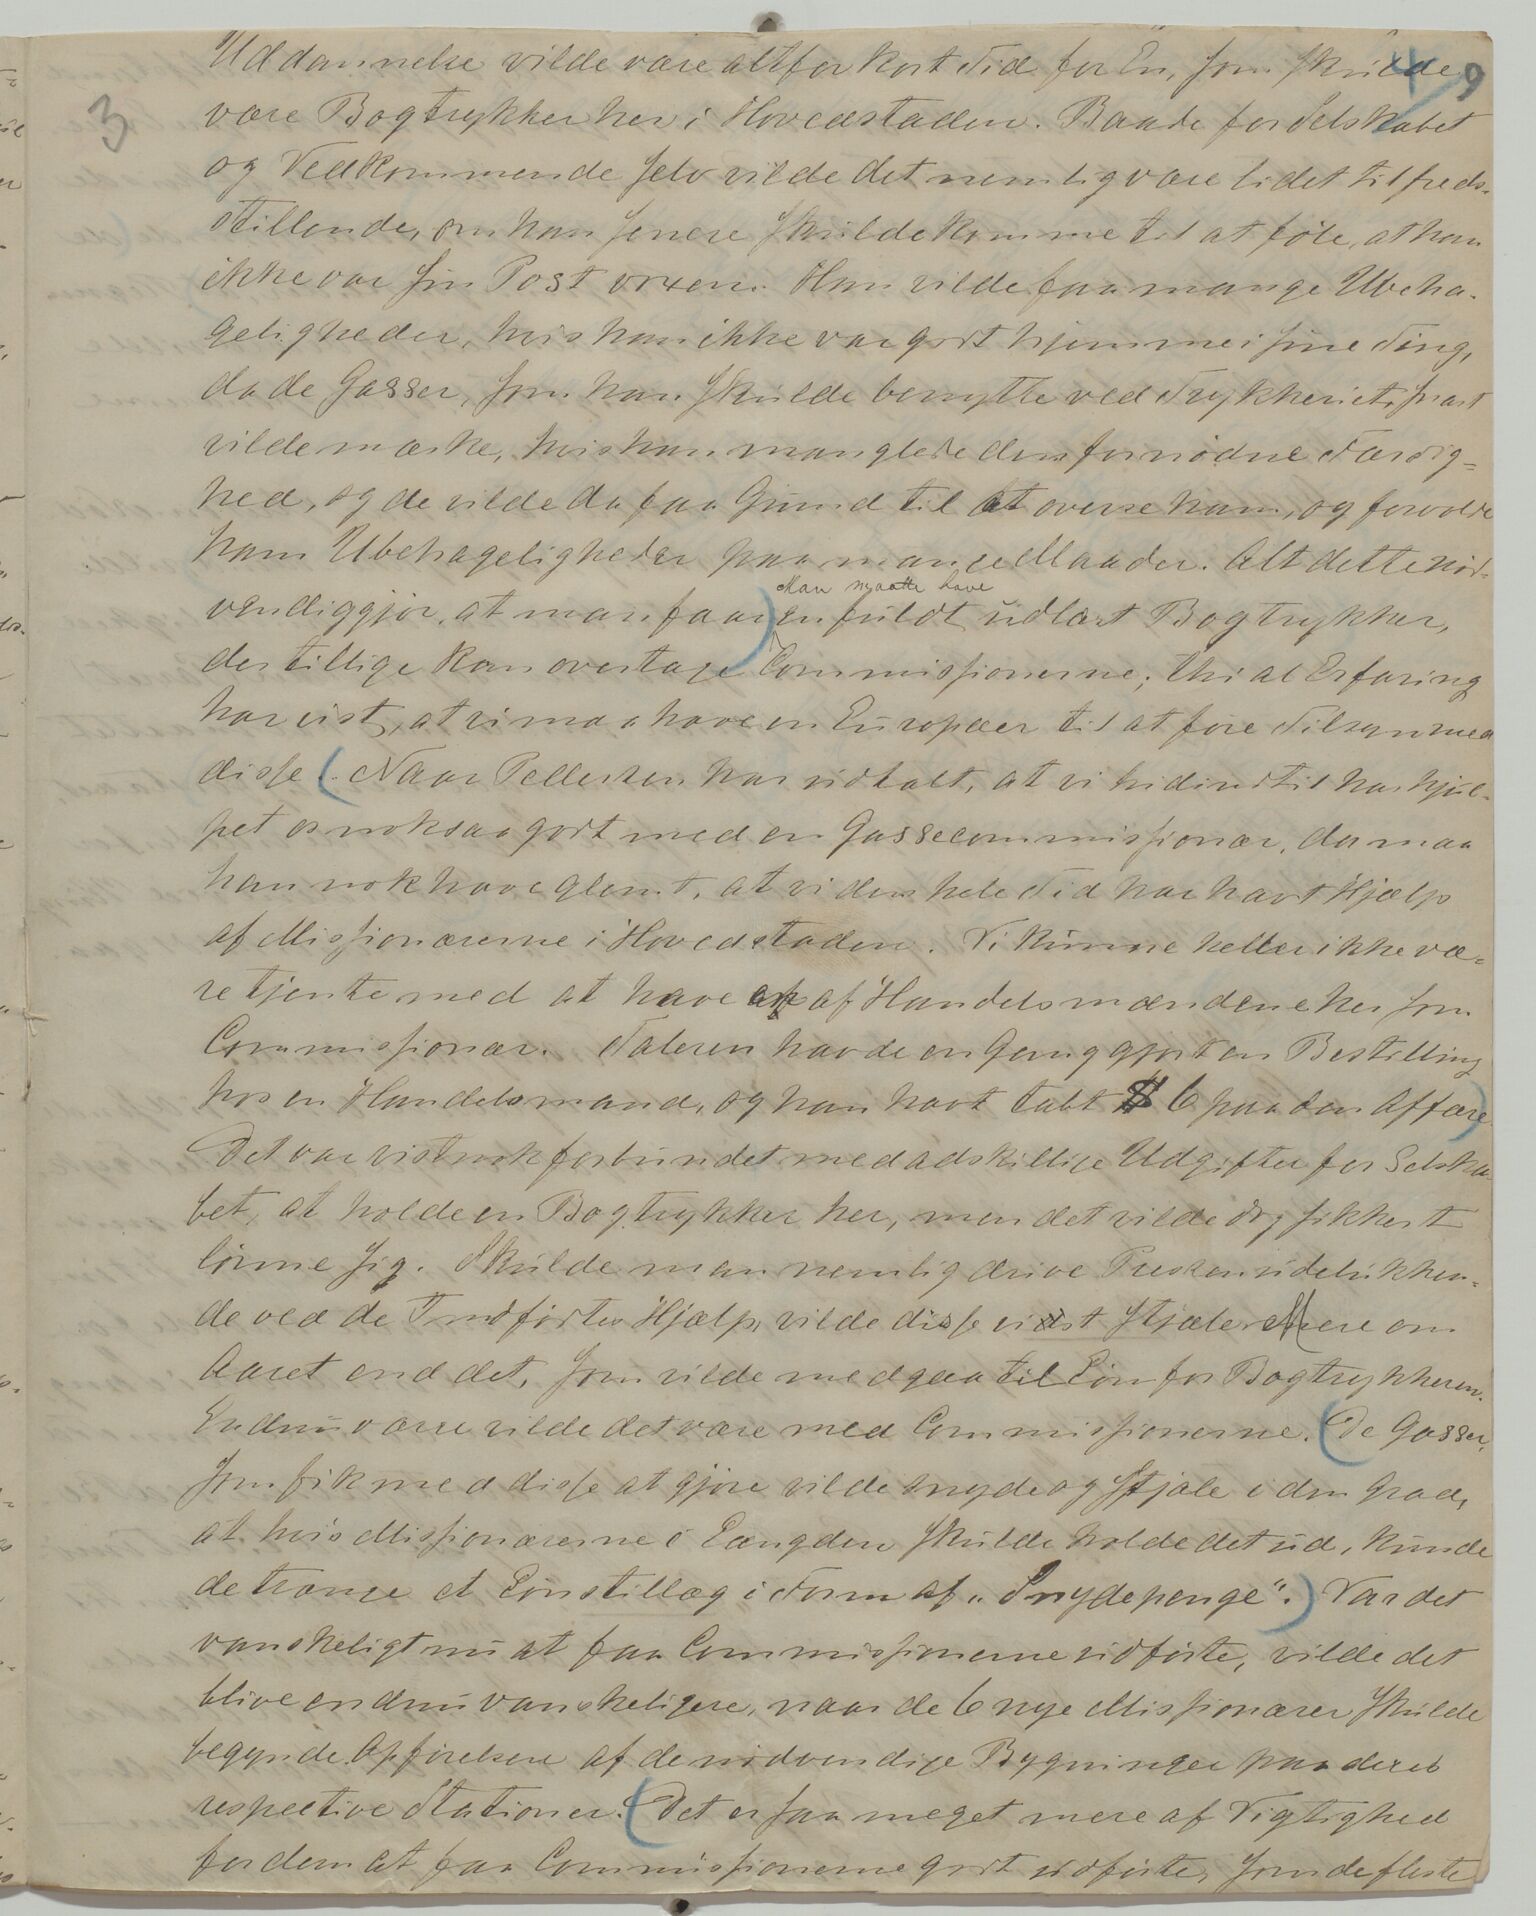 Uddannelse vilde være altfor kort Tid for En, som skulde
9
3
være Bogtrykker her i Hovedstaden. Baade for Selskabet
og Vedkommende selv vilde det nemlig være lidet tilfreds-
stillende, om han senere skulde komme til at føle, at han
ikke var sin Post voxen. Han vilde faa mange Ubeha-
geligheder, hvis han ikke var godt hjemme i sine Ting,
da de Gasser, som han skulde benytte ved Trykkeriet, snart
vilde mærke, hvis han manglede den fornødne Færdig-
hed, og de vilde da faa Grund til at overse ham, og forvolde
ham Ubehageligheder paa mange Maader. Alt dette nød-
Man maatte have
vendiggjør, at man faar) en fuldt udlært Bogtrykker,
der tillige kan overtage Commissionerne; thi al Erfaring
har vist, at vi maa have en Europæer til at føre Tilsyn med
disse. (Naar Pedersen har udtalt, at vi hidindtil har hjul-
pet os noksaa godt med en Gassecommissionær, da maa
han nok have glemt, at vi den hele Tid har havt Hjælp
af Missionærerne i Hovedstaden. Vi kunne heller ikke væ-
re tjente med at have af Handelsmændene her som
Commissionær. Taleren havde en Gang gjort en Bestilling
hos en Handelsmand, og han havt tabt $ 6 paa den Affære)
Det var vistnok forbundet med adskillige Udgifter for Selska-
bet, at holde en Bogtrykker her, men det vilde dog sikkert
lønne sig. Skulde man nemlig drive Pressen udelukken-
de ved de Indfødtes Hjælp, vilde disse vist stjæle Mere om
Aaret end det, som vilde medgaa til Løn for Bogtrykkeren.
Endnu værre vilde det være med Commissionerne. (De Gasser,
som fik med disse at gjøre vilde snyde og stjæle i den Grad,
at hvis Missionærerne i Længden skulde holde det ud, kunde
de trænge et Lønstillæg i Form af "Snydepenge".) Var det
vanskeligt nu at faa Commissionerne udførte, vilde det
blive endnu vanskeligere, naar de 6 nye Missionærer skulde
begynde Opførelsen af de nødvendige Bygninger paa deres
respective Stationer. (Det er saa meget mere af Vigtighed
for dem at faa Commissionerne godt udførte, som de fleste